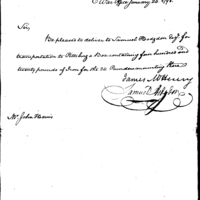 War Office January 20. 1798.
Sir,
Be pleased to deliver to Samuel Hodgdon Esqr. for
transportation to Pittsburg a Box containing four hundred and
twenty pounds of Iron for the 24 Pounders mounting there
James McHenry
Samuel Hodgdon
Mr. John Harris